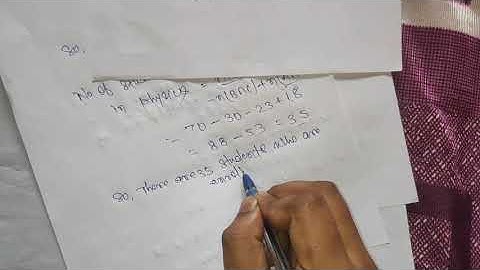 So,
No of
in physics =
- 70 - 30 - 23 + 18
= 88 - 53 = 35
So, There are 35 students who are
enroll